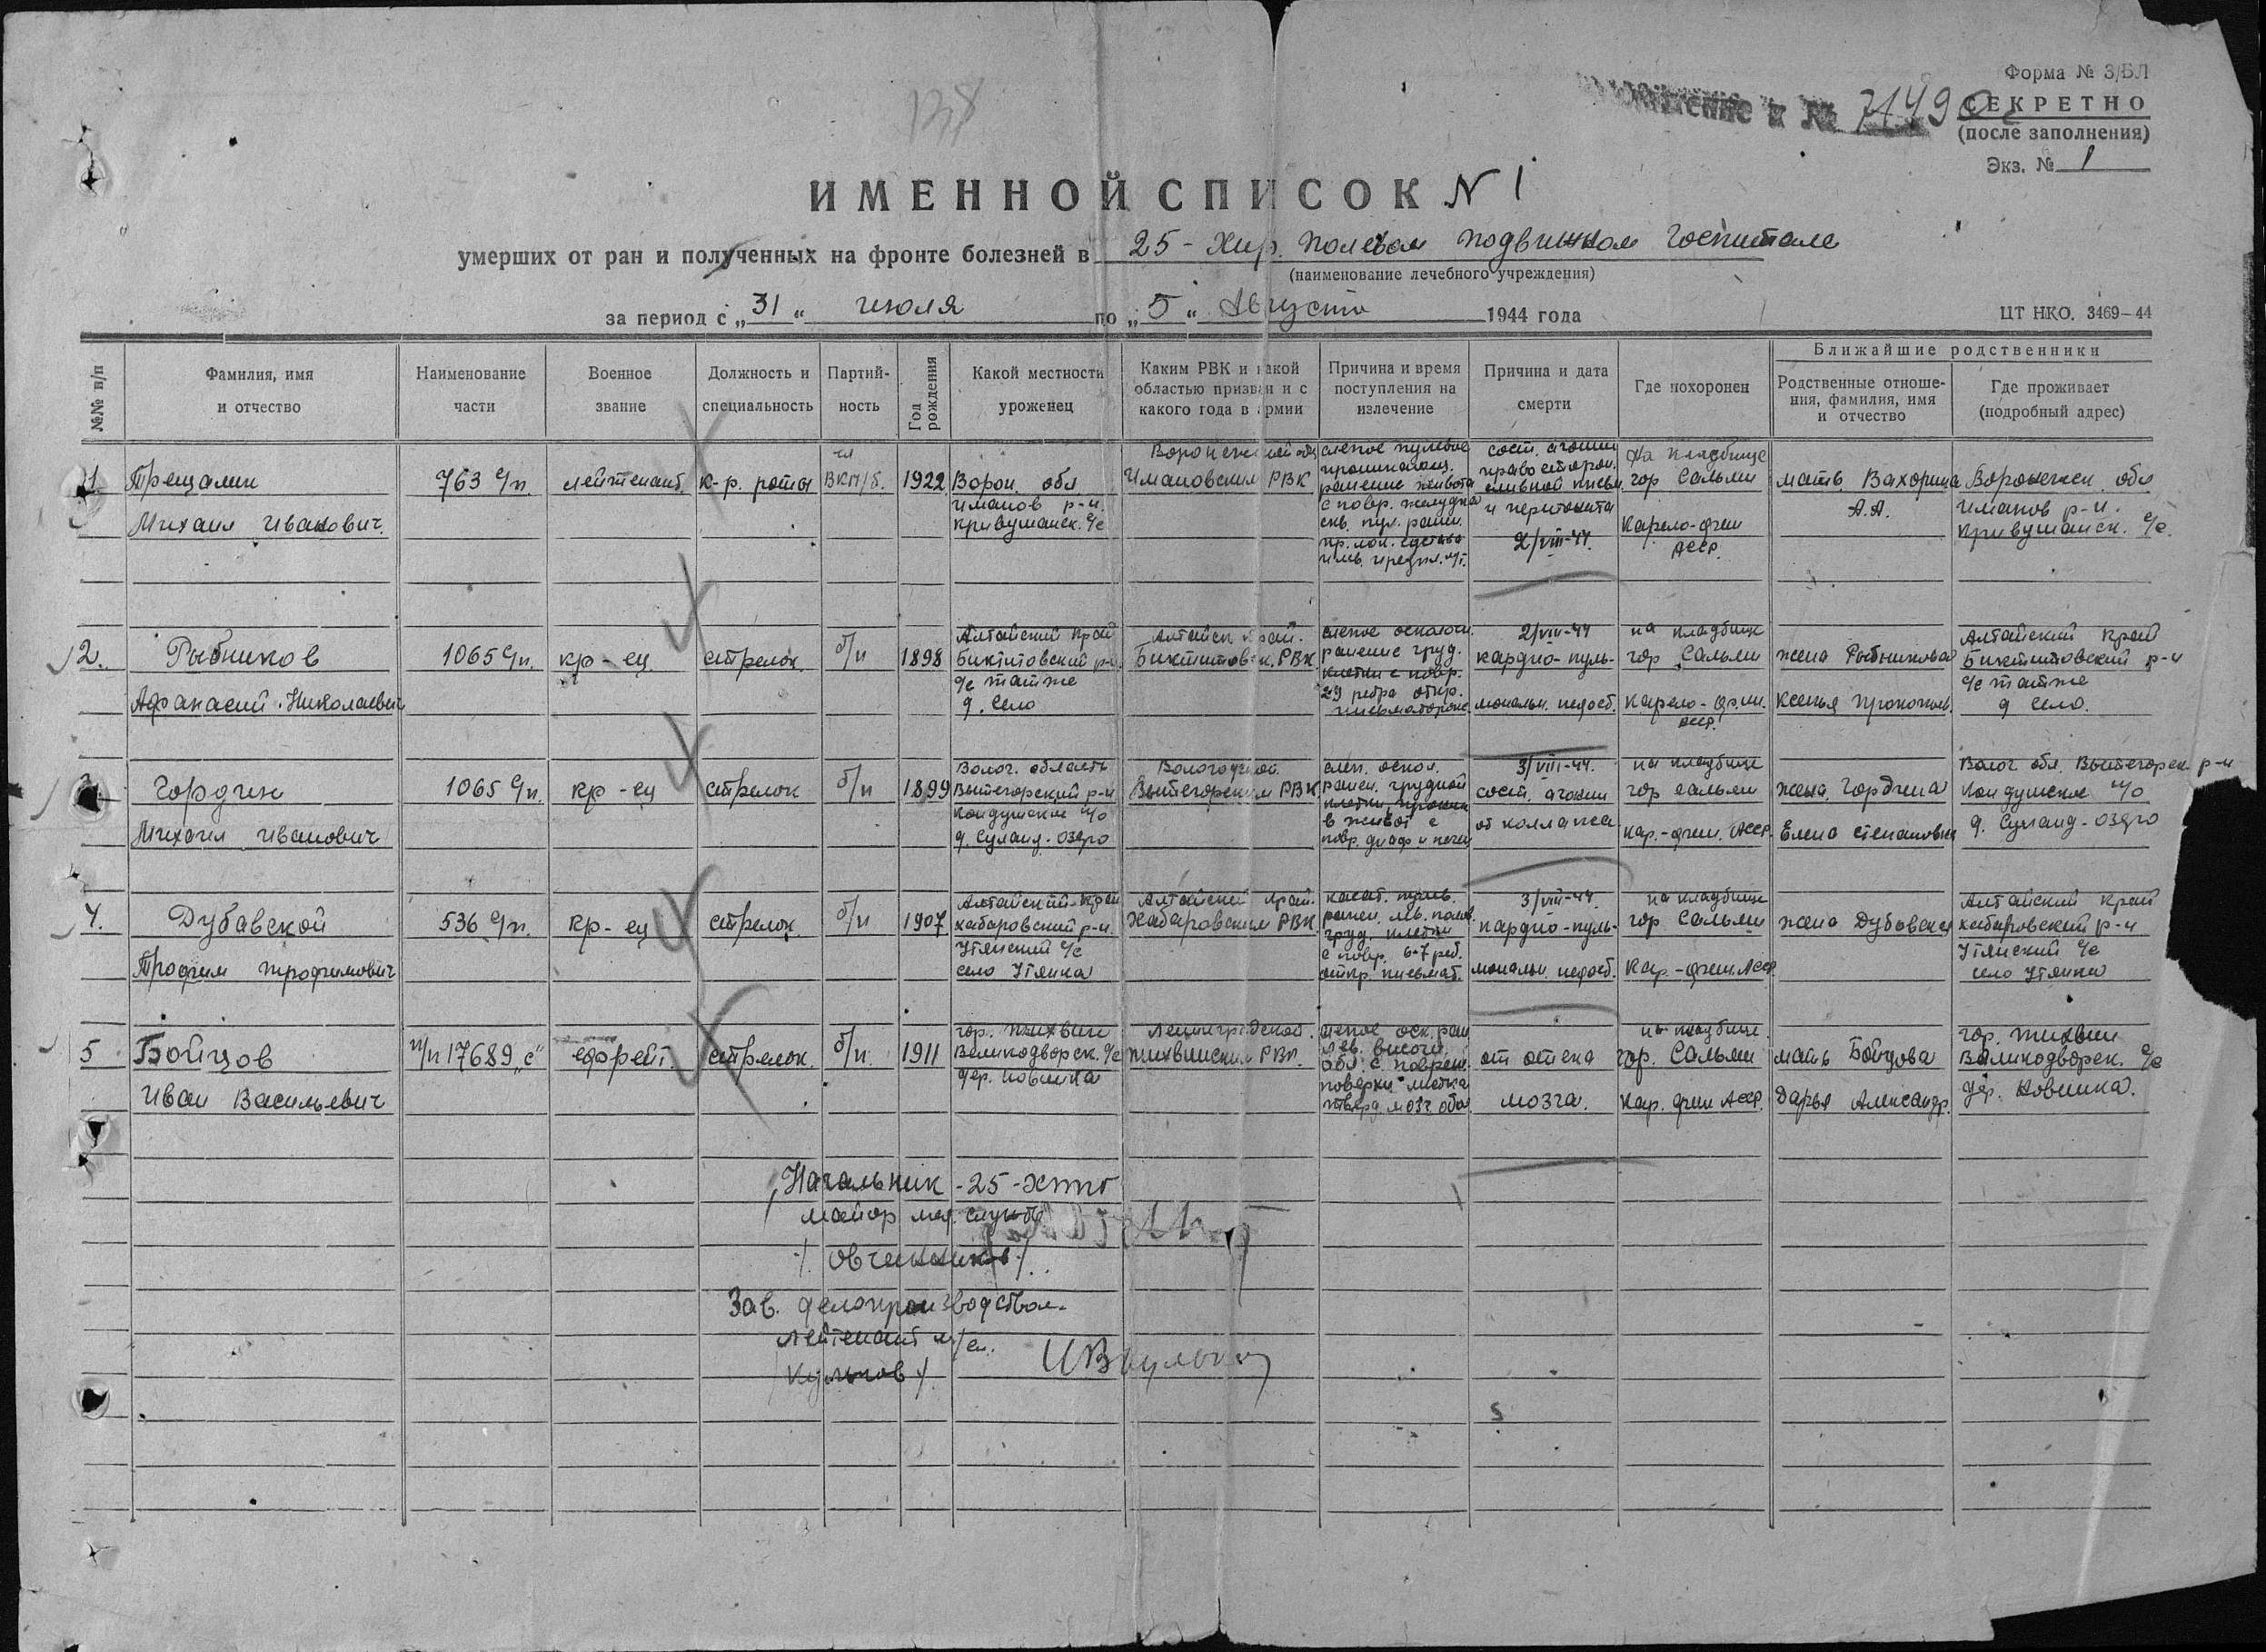 138
Форма № 3/БЛ
к № 71490с
СЕКРЕТНО
(после заполнения)
Экз. № 1
ИМЕННОЙ СПИСОК N 1
умерших от ран и полученных на фронте болезней в 25 - Хир. Полевом подвижном госпитале
(наименование лечебного учреждения)
за период с „31“ июля по „5“ Августа 1944 года
ЦТ НКО. 3469—44
№№ п/п
Фамилия, имя и отчество
Наименование части
Военное звание
Должность и специальность
Партий-ность
Год рождения
Какой местности уроженец
Каким РВК и какой областью призван и с какого года в армии
Причина и время поступления на излечение
Причина и дата смерти
Где похоронен
Ближайшие родственники
Родственные отноше-ния, фамилия, имя и отчество
Где проживает (подробный адрес)
1. Трещалин
Михаил Иванович.
763 с/п.
лейтенант.
к-р. роты
чл ВКП/б.
1922
Ворон. обл
Иманов р-н.
Кривушанск. с/с
Воронежской обл
Имановским РВК
слепое пулевое
проникающ.
ранение живота
с повр. желудка
сост. агонии
правосторон.
сливной пневм.
и перитонита
2/VIII-44.
На кладбище
гор Сальми
Карело-фин
АССР.
мать Вахорина
А.А.
Воронежск. обл
Иманов р-н.
Кривушанск. с/с.
2. Рыбников
Афанасий Николаевич
1065 с/п.
кр-ец
стрелок.
б/п
1898
Алтайский край
Биктитовский р-н
с/с также
д. село
Алтайск край.
Биктитовск. РВК
слепое осколоч.
ранение груд.
клетки с повр.
2/VIII-44
кардио-пуль-
мональн. недост.
на кладбище
гор Сальми
Карело-фин.
АССР.
жена Рыбникова
Ксенья Прокопьев.
Алтайский край
Биктитовский р-н
с/с также
д село.
3. Гордин
Михаил Иванович
1065 с/п.
кр-ец
стрелок
б/п
1899
Волог. область
Вытегорский р-н
Кондушское п/о
д. Суланд-озеро
Вологодской.
Вытегорским РВК
слеп. оскол.
ранен. грудной
клетки, проник
в живот с
повр. диаф. и печени
3/VIII-44.
сост. агонии
от коллапса
на кладбище
гор Сальми
Кар.-фин. АССР.
жена Гордина
Елена Степановна
Волог обл. Вытегорск р-н
Кондушское п/о
д. Суланд-озеро
4. Дубавской
Трофим Трофимович
536 с/п.
кр-ец
стрелок.
б/п
1907
Алтайский край
Хабаровский р-н.
Утянский с/с
село Утянка
Алтайский край.
Хабаровским РВК
касат. пулев.
ранен. лев. полов.
груд. клетки
с повр. 6-7 реб.
откр. пневмат.
3/VIII-44
кардио-пуль-
мональн. недост.
на кладбище
гор Сальми
Кар.-фин. АССР
жена Дубовская
Алтайский край
Хабаровский р-н
Утянский с/с
село Утянка
5 Бойцов
Иван Васильевич
п/п 17689„с“
ефрейт.
стрелок.
б/п.
1911
гор. Тихвин
Великодворск. с/с
дер. Новинка
Ленинградской.
Тихвинским РВК.
слепое оск. ран
лев. височн.
обл. с поврежд.
тверд. мозг. обол
от отека
мозга.
на кладбище.
гор. Сальми
Кар. фин АССР.
мать Бойцова
Дарья Александр.
гор. Тихвин
Великодворск. с/с
дер. Новинка.
Начальник - 25 - ХППГ
майор мед. службы
/. Овчинников /.
Зав. делопроизводством-
лейтенант м/сл.
/ Кульков /.